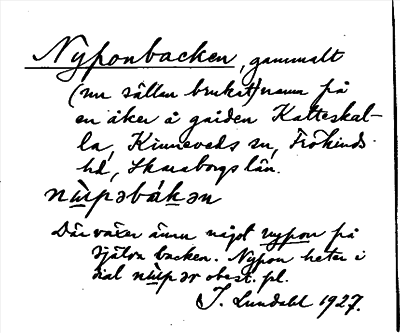 Nyponbacken, gammalt
(nu sällan brukat) namn på
en åker å gården Katteskal-
la, Kinneveds sn, Frökinds
hd, Skaraborgs län.
nu̇pəbákən
Där växer ännu något nypon på
själva backen. Nypon heter i
dial nu̇pər obest. pl.
J. Lundahl 1927.